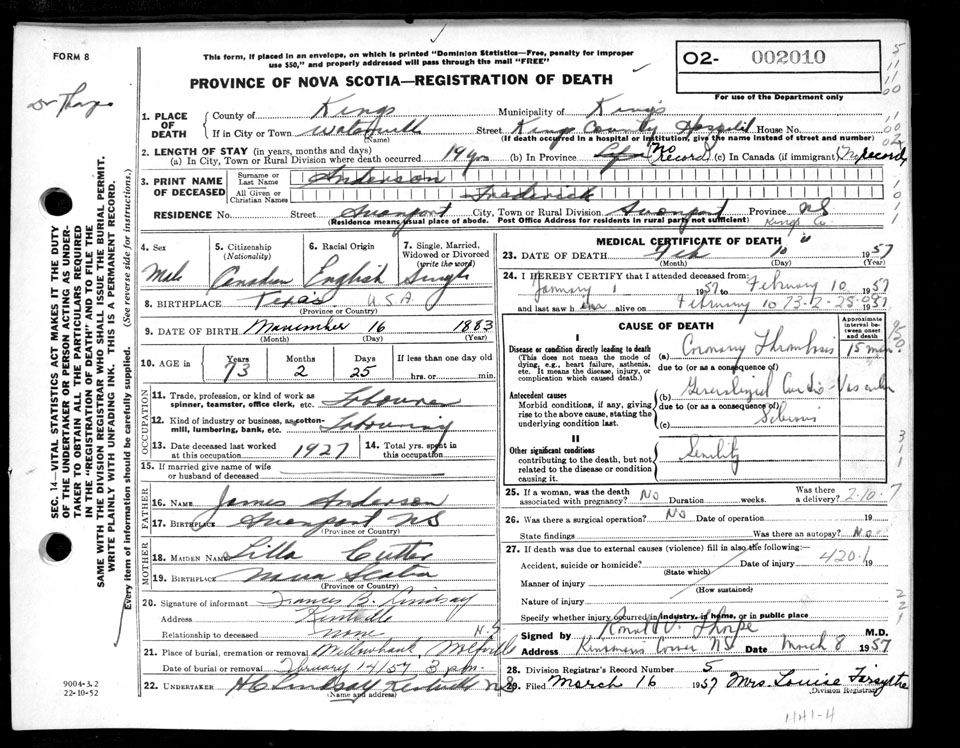 FORM 8
This form, if placed in an envelope, on which is printed "Dominion Statistics—Free, penalty for improper
use $50," and properly addressed will pass through the mail "FREE"
PROVINCE OF NOVA SCOTIA—REGISTRATION OF DEATH
02- 002010
For use of the Department only
Dr Thorpe
1. PLACE OF DEATH
County of Kings Municipality of Kings
If in City or Town Waterville Street Kings County Hospital House No.
(Name) (If death occurred in a hospital or institution, give the name instead of street and number)
2. LENGTH OF STAY (in years, months and days)
(a) In City, Town or Rural Division where death occurred 19 yrs (b) In Province Life (No record) (c) In Canada (if immigrant) (No record)
3. PRINT NAME OF DECEASED
Surname or Last Name Anderson
All Given or Christian Names Frederick
RESIDENCE No. Street Avonport City, Town or Rural Division Avonport Province NS
(Residence means usual place of abode. Post Office Address for residents in rural parts not sufficient) Kings Co.
4. Sex Male
5. Citizenship (Nationality) Canadian
6. Racial Origin English
7. Single, Married, Widowed or Divorced (write the word) Single
8. BIRTHPLACE Texas USA
(Province or Country)
9. DATE OF BIRTH November 16 1883
(Month) (Day) (Year)
10. AGE in Years 73 Months 2 Days 25 If less than one day old
hrs. or min.
OCCUPATION
11. Trade, profession, or kind of work as spinner, teamster, office clerk, etc. Labourer
12. Kind of industry or business, as cotton-mill, lumbering, bank, etc. Labouring
13. Date deceased last worked at this occupation 1927
14. Total yrs. spent in this occupation
15. If married give name of wife or husband of deceased
FATHER
16. NAME James Anderson
17. Birthplace Avonport NS
(Province or Country)
MOTHER
18. MAIDEN NAME Lilla Cutter
19. BIRTHPLACE Nova Scotia
(Province or Country)
20. Signature of informant Frances B. Lindsay
Address Kentville
Relationship to deceased none N.S
21. Place of burial, cremation or removal Willowbank, Wolfville
Date of burial or removal February 14/57 3 pm.
22. UNDERTAKER H C Lindsay Kentville NS
(Name and address)
MEDICAL CERTIFICATE OF DEATH
23. DATE OF DEATH Feb 10 1957
(Month) (Day) (Year)
24. I HEREBY CERTIFY that I attended deceased from
January 1 1957 to February 10 1957
and last saw him alive on February 10 1957
73-2-25-
CAUSE OF DEATH
Approximate interval between onset and death
I
Disease or condition directly leading to death
(This does not mean the mode of dying, e.g., heart failure, asthenia, etc. It means the disease, injury, or complication which caused death.)
(a) Coronary Thrombosis 15 min.
due to (or as a consequence of)
Antecedent causes
Morbid conditions, if any, giving rise to the above cause, stating the underlying condition last.
(b) Generalized Cardio-Vascular
due to (or as a consequence of)
Sclerosis
(c)
II
Other significant conditions
contributing to the death, but not related to the disease or condition causing it.
Senility
25. If a woman, was the death associated with pregnancy? No Duration weeks. Was there a delivery? 2-10-7
26. Was there a surgical operation? No Date of operation 19
State findings Was there an autopsy? No
27. If death was due to external causes (violence) fill in also the following:—
Accident, suicide or homicide? Date of injury 420-1 19
(State which)
Manner of injury
(How sustained)
Nature of injury
Specify whether injury occurred in industry, in home, or in public place
Signed by Ronald V. Thorpe M.D.
Address Kinsmans Corner NS Date March 8 1957
28. Division Registrar's Record Number 5
29. Filed March 16 1957 Mrs. Louise Forsythe
(Division Registrar)
1141-4
SEC. 14—VITAL STATISTICS ACT MAKES IT THE DUTY
OF THE UNDERTAKER OR PERSON ACTING AS UNDER-
TAKER TO OBTAIN ALL THE PARTICULARS REQUIRED
IN THE "REGISTRATION OF DEATH" AND TO FILE THE
SAME WITH THE DIVISION REGISTRAR WHO SHALL ISSUE THE BURIAL PERMIT.
WRITE PLAINLY WITH UNFADING INK. THIS IS A PERMANENT RECORD.
Every item of information should be carefully supplied. (See reverse side for instructions.)
9004-3.2
22-10-52